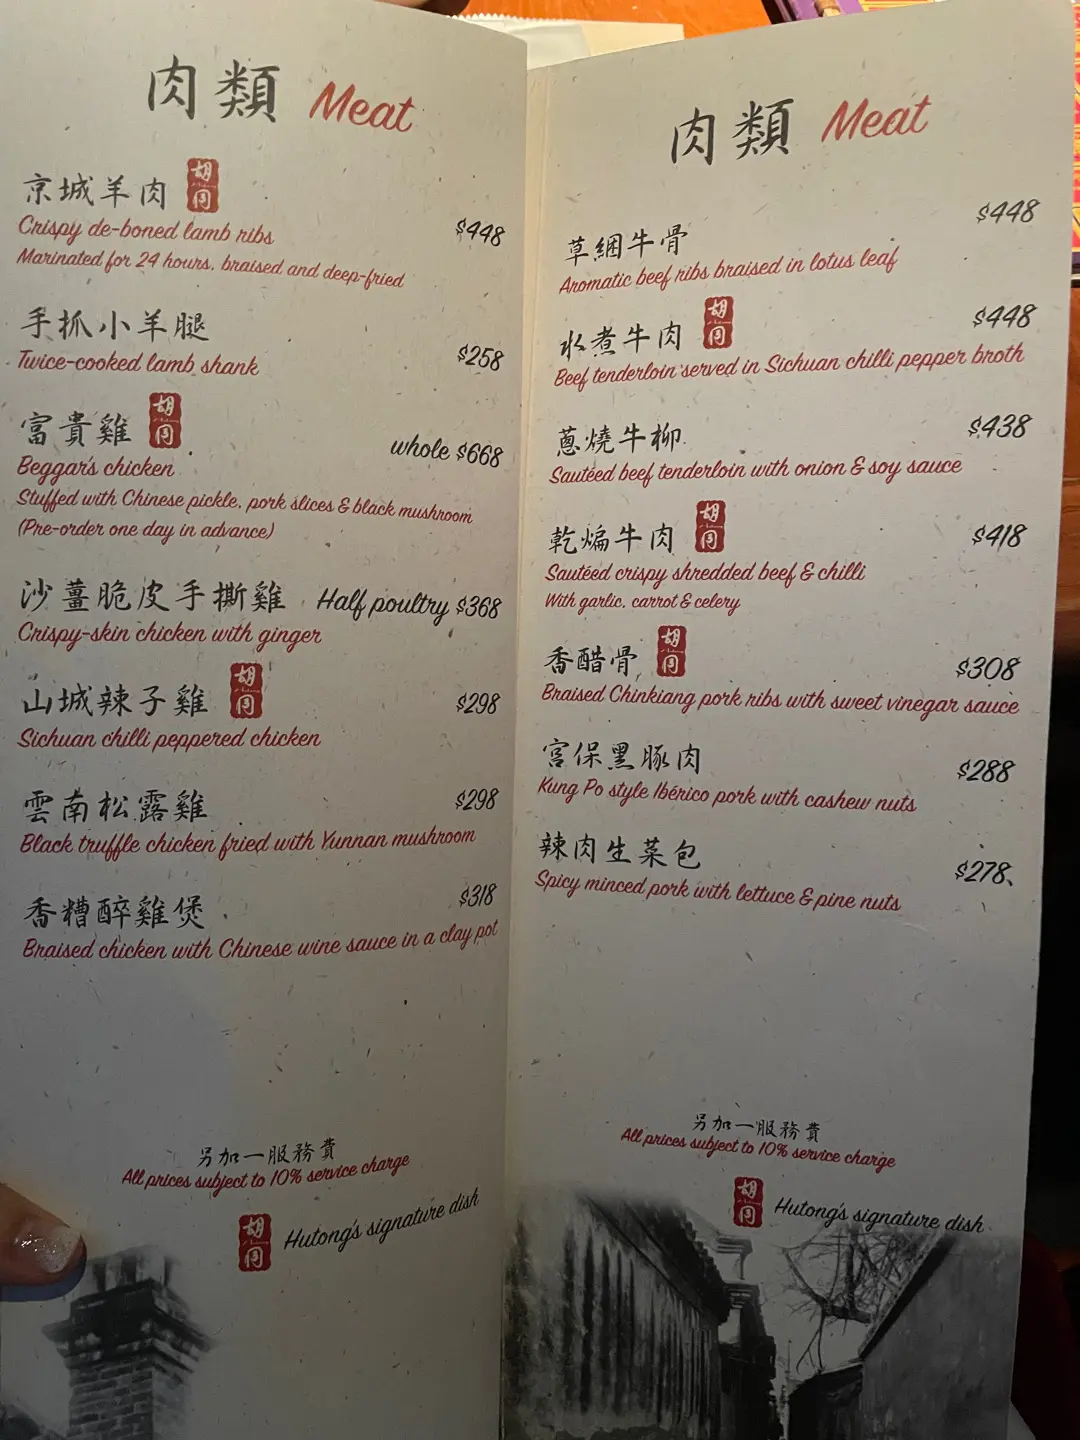 肉類 Meat
京城羊肉 胡同
Crispy de-boned lamb ribs $448
Marinated for 24 hours, braised and deep-fried
手抓小羊腿
Twice-cooked lamb shank $258
富貴雞 胡同
whole $668
Beggar's chicken
Stuffed with Chinese pickle, pork slices & black mushroom
(Pre-order one day in advance)
沙薑脆皮手撕雞 Half poultry $368
Crispy-skin chicken with ginger
山城辣子雞 胡同 $298
Sichuan chilli peppered chicken
雲南松露雞 $298
Black truffle chicken fried with Yunnan mushroom
香糟醉雞煲 $318
Braised chicken with Chinese wine sauce in a clay pot
另加一服務費
All prices subject to 10% service charge
胡同 Hutong's signature dish
肉類 Meat
草綑牛骨 $448
Aromatic beef ribs braised in lotus leaf
水煮牛肉 胡同 $448
Beef tenderloin served in Sichuan chilli pepper broth
蔥燒牛柳 $438
Sautéed beef tenderloin with onion & soy sauce
乾煸牛肉 胡同 $418
Sautéed crispy shredded beef & chilli
With garlic, carrot & celery
香醋骨 胡同 $308
Braised Chinkiang pork ribs with sweet vinegar sauce
宮保黑豚肉 $288
Kung Po style Ibérico pork with cashew nuts
辣肉生菜包 $278
Spicy minced pork with lettuce & pine nuts
另加一服務費
All prices subject to 10% service charge
胡同 Hutong's signature dish